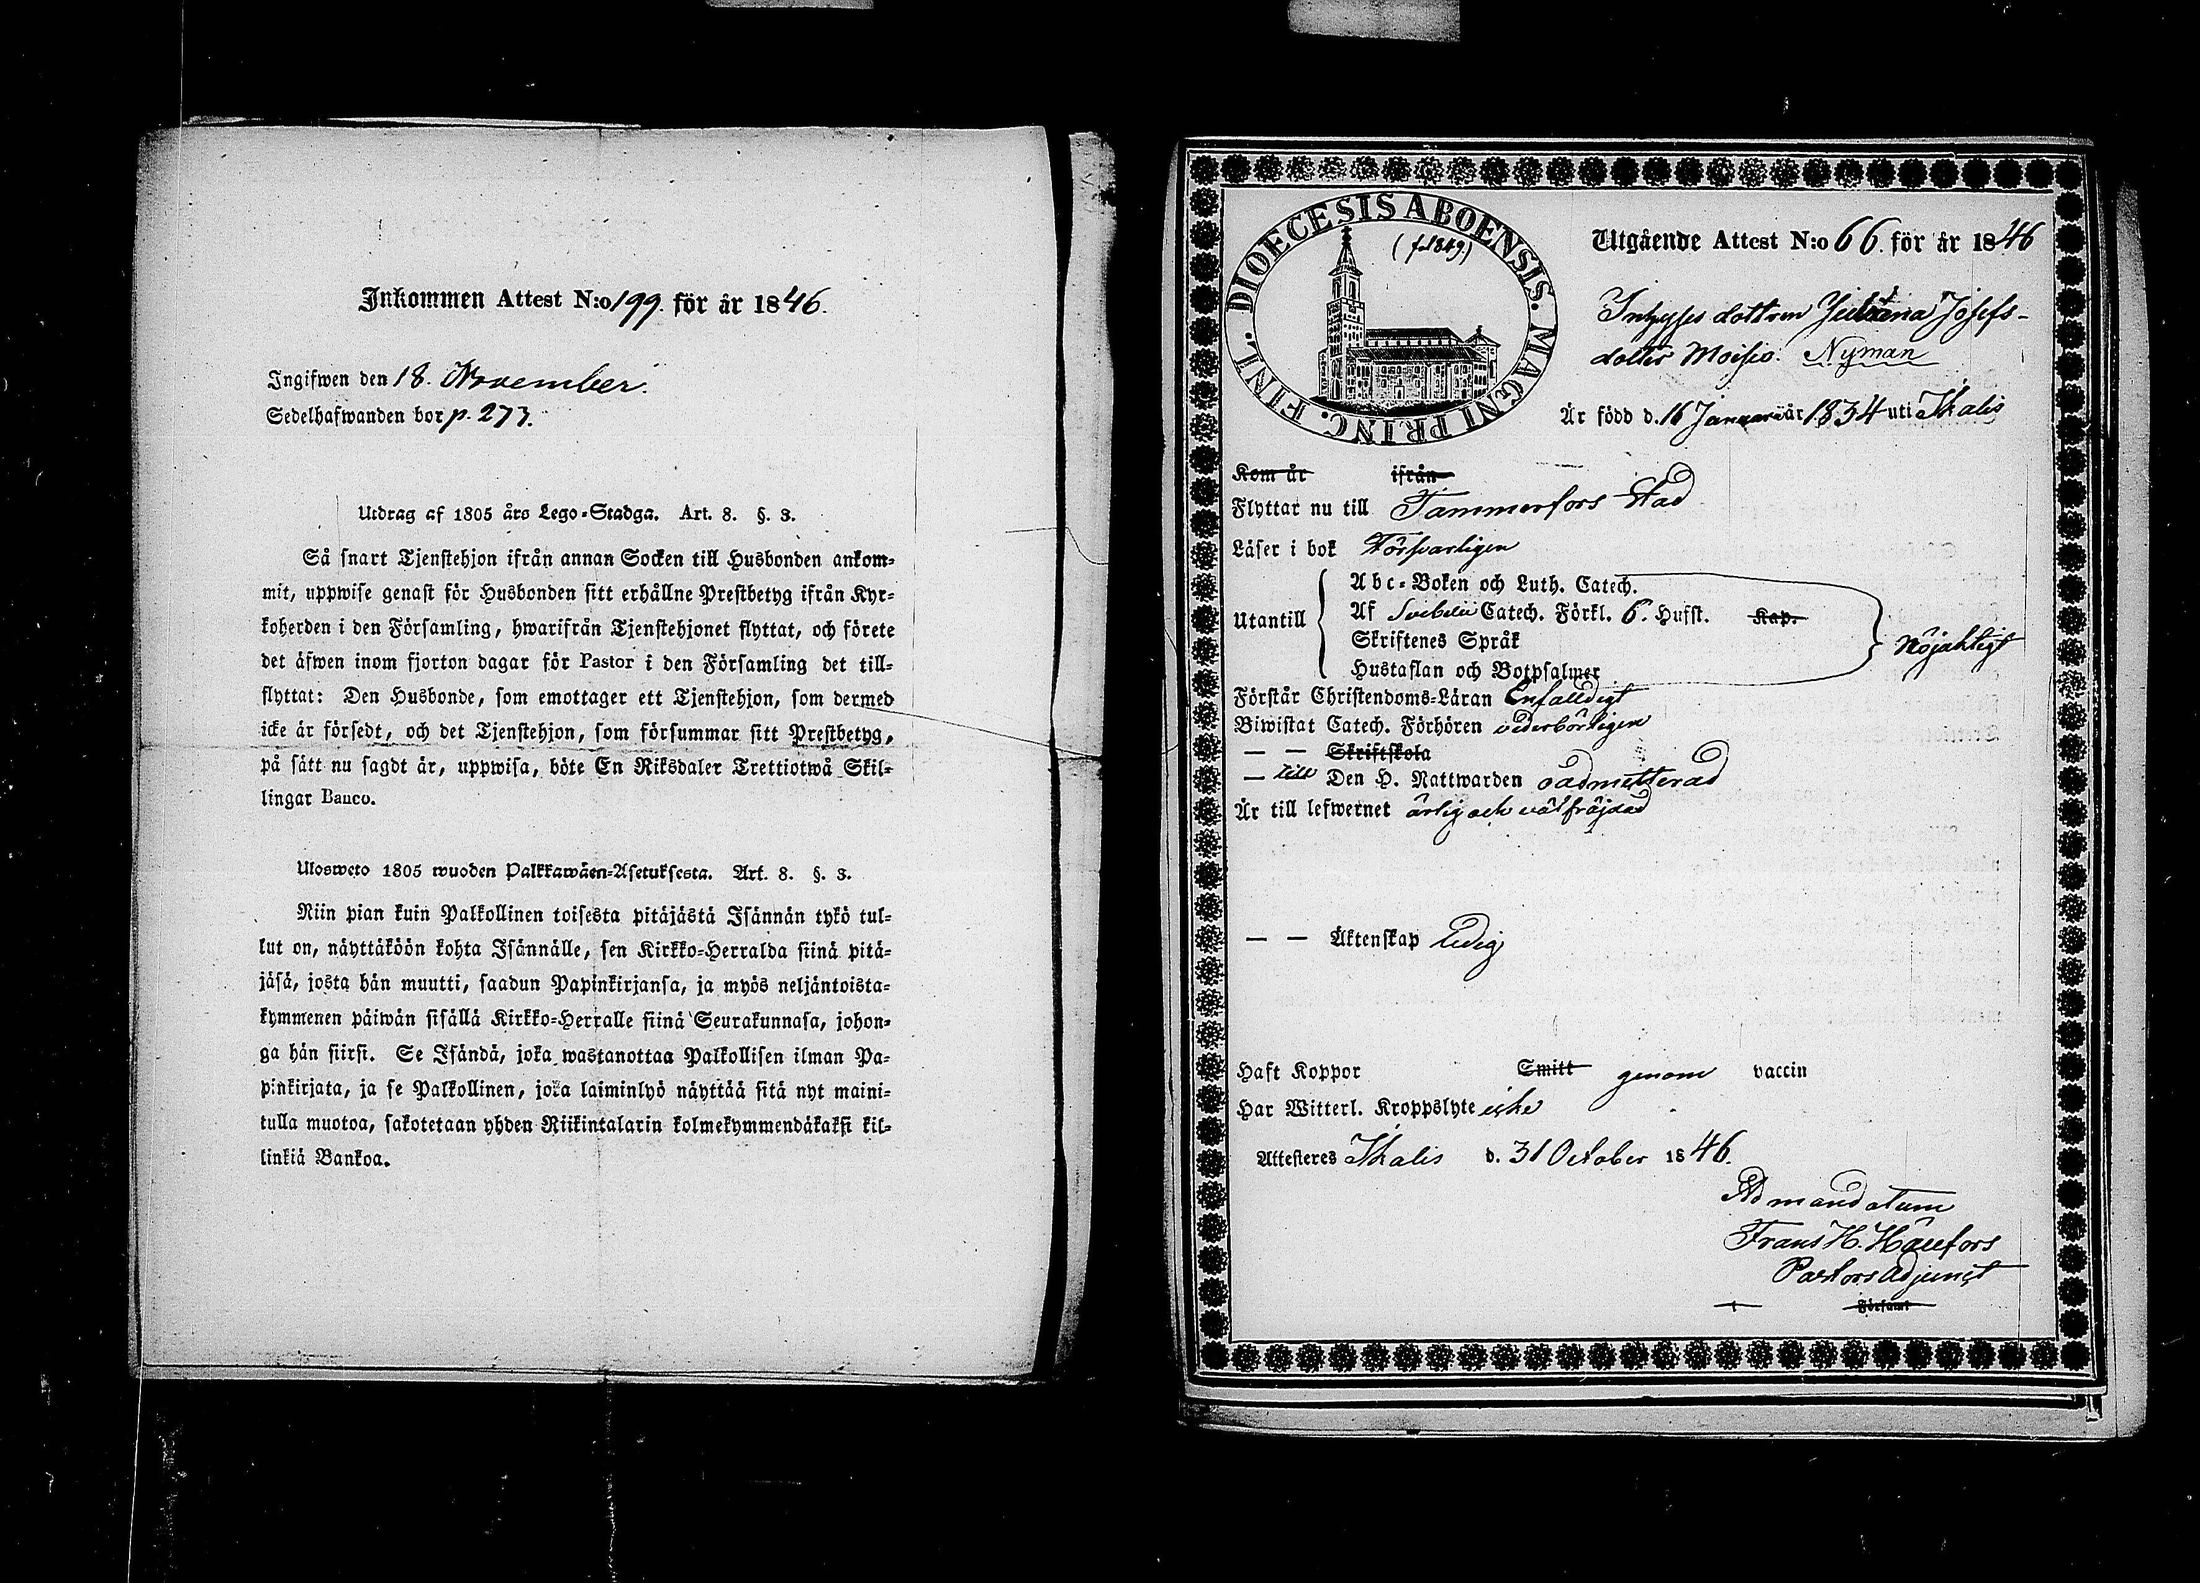 Inkommen Attest N:o 199. för år 1846.
Ingifwen den 18. November.
Sedelhafwanden bor p. 273.
Utdrag af 1805 års Lego-Stadga. Art. 8. §. 3.
Så snart Tjenstehjon ifrån annan Socken till Husbonden ankom-
mit, uppwise genast för Husbonden sitt erhållne Prestbetyg ifrån Kyr-
koherden i den Församling, hwarifrån Tjenstehjonet flyttat, och förete
det äfwen inom fjorton dagar för Pastor i den Församling det till-
flyttat: Den Husbonde, som emottager ett Tjenstehjon, som dermed
icke är försedt, och det Tjenstehjon, som försummar sitt Prestbetyg,
på sätt nu sagdt är, uppwisa, böte En Riksdaler Trettiotwå Skil-
lingar Banco.
Ulosweto 1805 wuoden Palkkawäen-Asetuksesta. Art. 8. §. 3.
Niin pian kuin Palkollinen toisesta pitäjästä Isännän tykö tul-
lut on, näyttäköön kohta Isännälle, sen Kirkko-Herralda siinä pitä-
jäsä, josta hän muutti, saadun Papinkirjansa, ja myös neljäntoista-
kymmenen päiwän sisällä Kirkko-Herralle siinä Seurakunnasa, johon-
ga hän siirsi. Se Isändä, joka wastanottaa Palkollisen ilman Pa-
pinkirjata, ja se Palkollinen, joka laiminlyö näyttää sitä nyt maini-
tulla muotoa, sakotetaan yhden Riikintalarin kolmekymmendäkaksi kil-
linkiä Bankoa.
DIOECESIS ABOENSIS. MAGNI PRINC. FINL.
(fol 849.)
Utgående Attest N:o 66. för år 1846
Inhyses dottren Josefs-
dotter Moisio. Nyman
Är född d. 16 Januari år 1834 uti Ikalis
Kom år ifrån
Flyttar nu till Tammerfors Stad
Läser i bok Försvarligen
Utantill
Abc-Boken och Luth. Catech.
Af Svebelii Catech. Förkl. 6. Hufst. Kap.
Skriftenes Språk
Hustaflan och Botpsalmer
Nöjaktigt
Förstår Christendoms-Läran Enfalldigt
Biwistat Catech. Förhören vederbörligen
— — Skriftskola
— till Den H. Nattwarden oadmitterad
Är till lefwernet ärlig och välfräjdad
— — Äktenskap ledig
Haft Koppor Smitt genom vaccin
Har Witterl. Kroppslyte icke
Attesteres Ikalis d. 31 October 1846.
Ad mandatum
Frans H. Hällfors
Pastors Adjunct
i Församl.